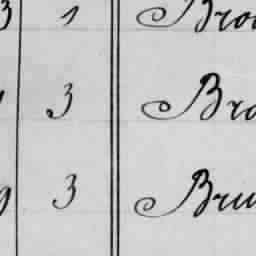 3 1 Bro
3 Bro
9 3 Bru